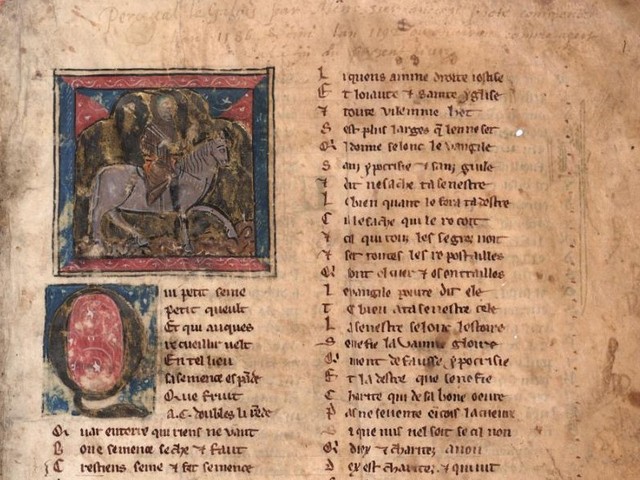 Perceval le Galois par
1186 lan
Qui petit seme
petit queult
Et qui auques
recueillir velt
En tel lieu
sa semence espāde
Que fruit
a .C. doubles li rēde
Quar en terre qui riens ne vaut
Bone semence seche & faut
Crestiens seme & fet semence
Li quens aimme droite iostise
Et loiaute & sainte yglise
& toute vilennie het
Sest plus larges q̃ len ne set
Qͥl donne selonc levangile
Sanz ypocrisie & sanz guile
& dit ne sache ta senestre
Le bien quant le fera ta destre
Cil le sache qui le recoit
& qui touz les segrez voit
& set toutes les repostailles
Qͥ sont el cuer & es entrailles
Levangile dit ele
bien a ta senestre cele
La senestre selonc lestoire
Senefie la vainne gloire
Qͥ vient de fausse ypocrisie
Et la destre que senefie
Charite qui de sa bone oevre
Pas ne se vente encois la cuevre
Si que nus nel set se cil non
Qͥ diex & charitez a non
Diex est charitez & qui vit